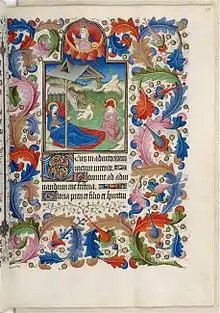 Deus in adiutorium
meum intende.
Domine ad adiu
uandum me festina.
Gloria patri et filio et spiritui